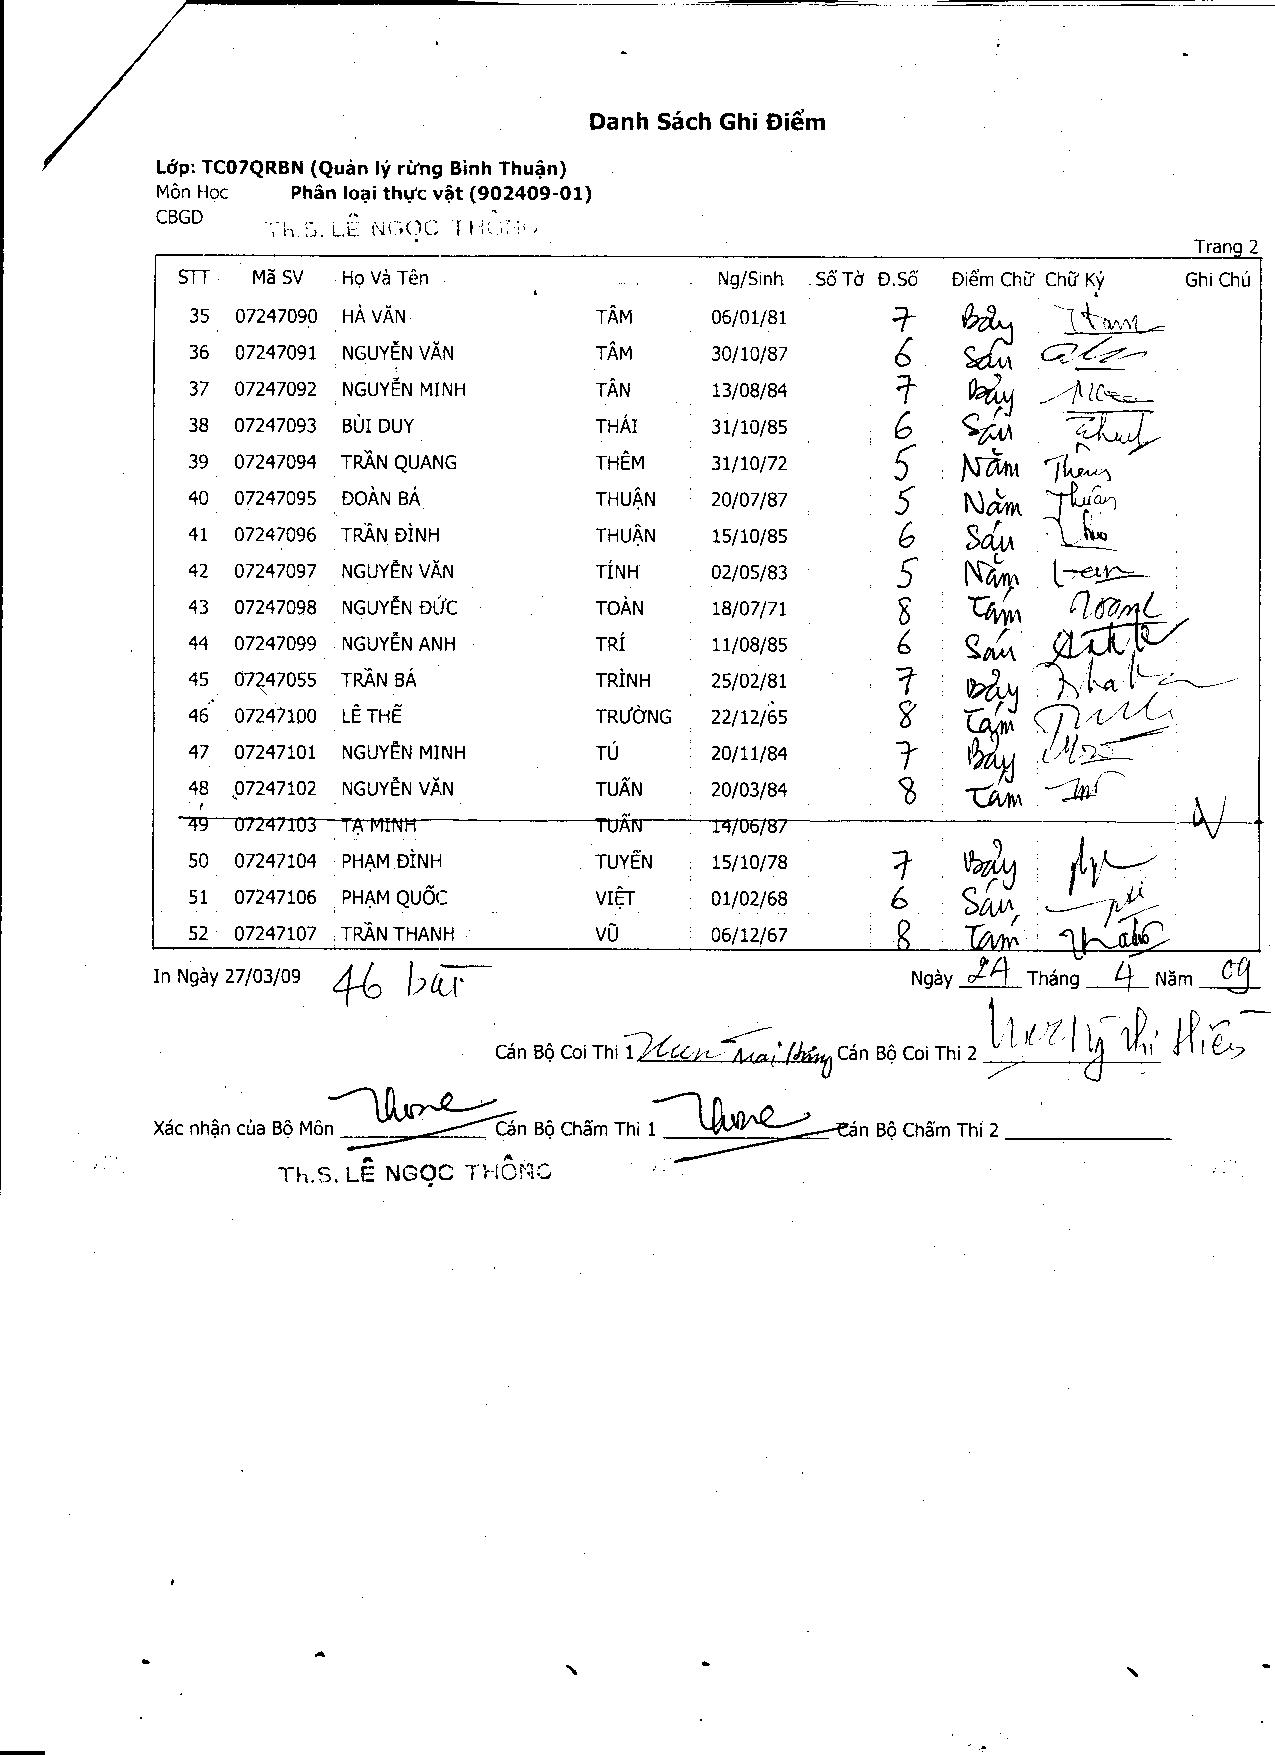 Danh Sách Ghi Điểm
Lớp: TC07QRBN (Quản lý rừng Bình Thuận)
Môn Học Phân loại thực vật (902409-01)
CBGD Th.S. LÊ NGỌC THÔNG
Trang 2
STT Mã SV Họ Và Tên Ng/Sinh Số Tờ Đ.Số Điểm Chữ Chữ Ký Ghi Chú
35 07247090 HÀ VĂN TÂM 06/01/81 7 Bảy
36 07247091 NGUYỄN VĂN TÂM 30/10/87 6 Sáu
37 07247092 NGUYỄN MINH TÂN 13/08/84 7 Bảy
38 07247093 BÙI DUY THÁI 31/10/85 6 Sáu
39 07247094 TRẦN QUANG THÊM 31/10/72 5 Năm Thêm
40 07247095 ĐOÀN BÁ THUẬN 20/07/87 5 Năm Thuận
41 07247096 TRẦN ĐÌNH THUẬN 15/10/85 6 Sáu
42 07247097 NGUYỄN VĂN TÍNH 02/05/83 5 Năm
43 07247098 NGUYỄN ĐỨC TOÀN 18/07/71 8 Tám
44 07247099 NGUYỄN ANH TRÍ 11/08/85 6 Sáu
45 07247055 TRẦN BÁ TRÌNH 25/02/81 7 Bảy
46 07247100 LÊ THẾ TRƯỜNG 22/12/65 8 Tám
47 07247101 NGUYỄN MINH TÚ 20/11/84 7 Bảy
48 07247102 NGUYỄN VĂN TUẤN 20/03/84 8 Tám
49 07247103 TẠ MINH TUẤN 14/06/87 V
50 07247104 PHẠM ĐÌNH TUYẾN 15/10/78 7 Bảy
51 07247106 PHẠM QUỐC VIỆT 01/02/68 6 Sáu
52 07247107 TRẦN THANH VŨ 06/12/67 8 Tám
In Ngày 27/03/09 46 bài Ngày 24 Tháng 4 Năm 09
Cán Bộ Coi Thi 1 Cán Bộ Coi Thi 2
Xác nhận của Bộ Môn Cán Bộ Chấm Thi 1 Cán Bộ Chấm Thi 2
Th.S. LÊ NGỌC THÔNG